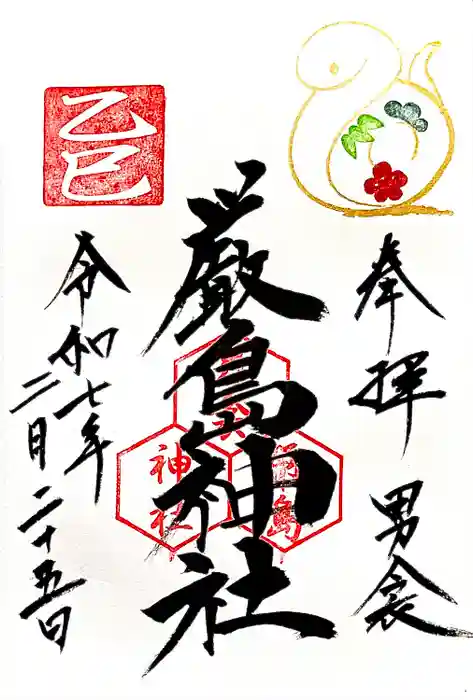 奉拝
男衾
厳島神社
乙巳
神社
令和七年
二月二十五日